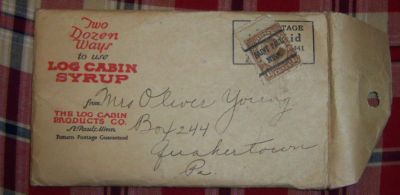 Two
Dozen
Ways
to use
LOG CABIN
SYRUP
from
THE LOG CABIN
PRODUCTS CO.
St. Paul, Minn.
Return Postage Guaranteed
Mrs Oliver Young
Box 244
Quakertown
Pa.